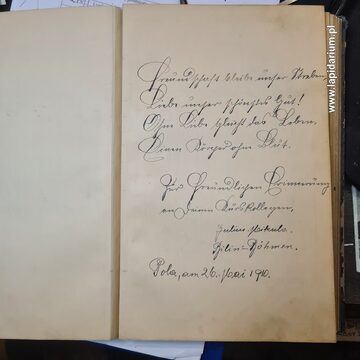 Freundschaft bleibe unser Streben,
Liebe unser schönstes Gut!
Ohne Liebe gleicht das Leben,
Einen Körper ohne Blut.
Zur freundlichen Erinnerung
an Deinen Kurskollegen,
Bilin-Böhmen.
Pola, am 26. Mai 1910.
www.lapidarium.pl